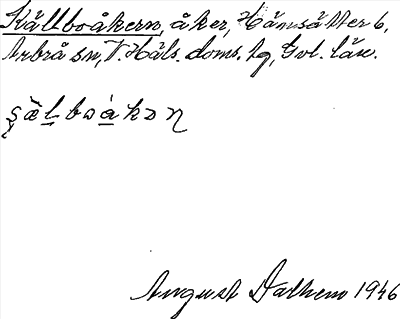 Källboåkern, åker, Hämsätter 6,
Arbrå sn, V. Häls. doms. hg, Gvl. län.
August Dalhem 1946